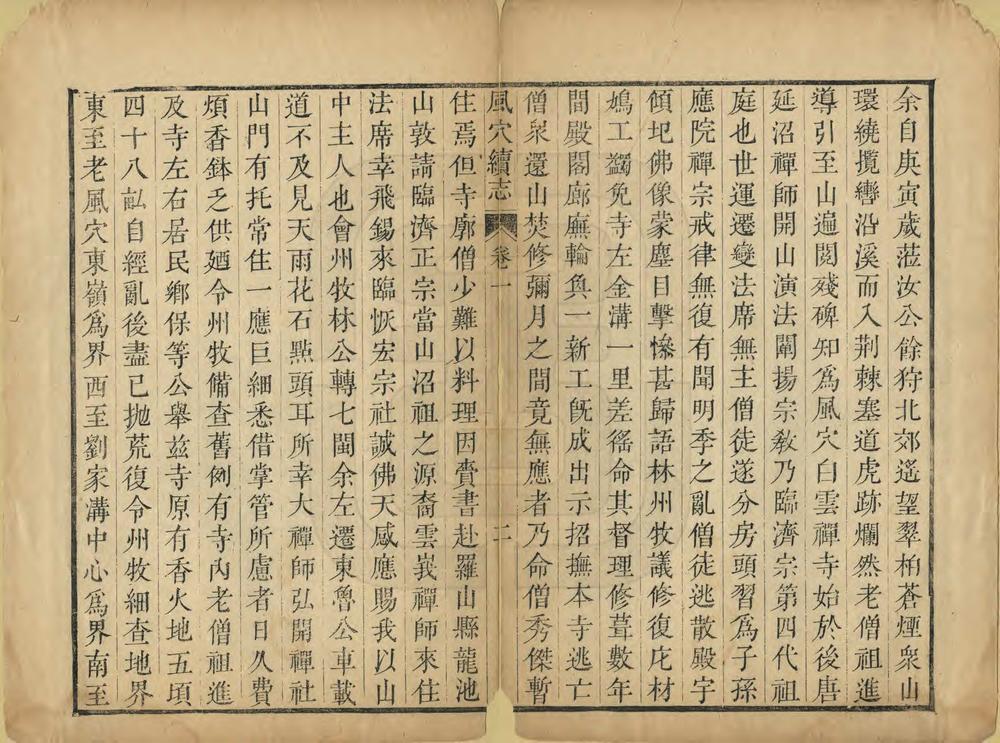 余自庚寅歲蒞汝公餘狩北郊遙望翠柏蒼煙衆山
環繞攬轡沿溪而入荆棘塞道虎跡爛然老僧祖進
導引至山遍閱殘碑知爲風穴白雲禪寺始於後唐
延沼禪師開山演法闡揚宗教乃臨濟宗第四代祖
庭也世運遷變法席無主僧徒遂分房頭習爲子孫
應院禪宗戒律無復有聞明季之亂僧徒逃散殿宇
傾圮佛像蒙塵目擊慘甚歸語林州牧議修復庀材
鳩工蠲免寺左金溝一里差徭命其督理修葺數年
間殿閣廊廡輪奐一新工旣成出示招撫本寺逃亡
僧衆還山焚修彌月之間竟無應者乃命僧秀傑暫
風穴續志 卷一 二
住焉但寺廓僧少難以料理因賫書赴羅山縣龍池
山敦請臨濟正宗當山沼祖之源裔雲峩禪師來住
法席幸飛錫來臨恢宏宗社誠佛天感應賜我以山
中主人也會州牧林公轉七閩余左遷東魯公車載
道不及見天雨花石點頭耳所幸大禪師弘開禪社
山門有托常住一應巨細悉借掌管所慮者日久費
煩香鉢乏供廼令州牧備查舊例有寺內老僧祖進
及寺左右居民鄉保等公舉茲寺原有香火地五頃
四十八畝自經亂後盡已抛荒復令州牧細查地界
東至老風穴東嶺爲界西至劉家溝中心爲界南至